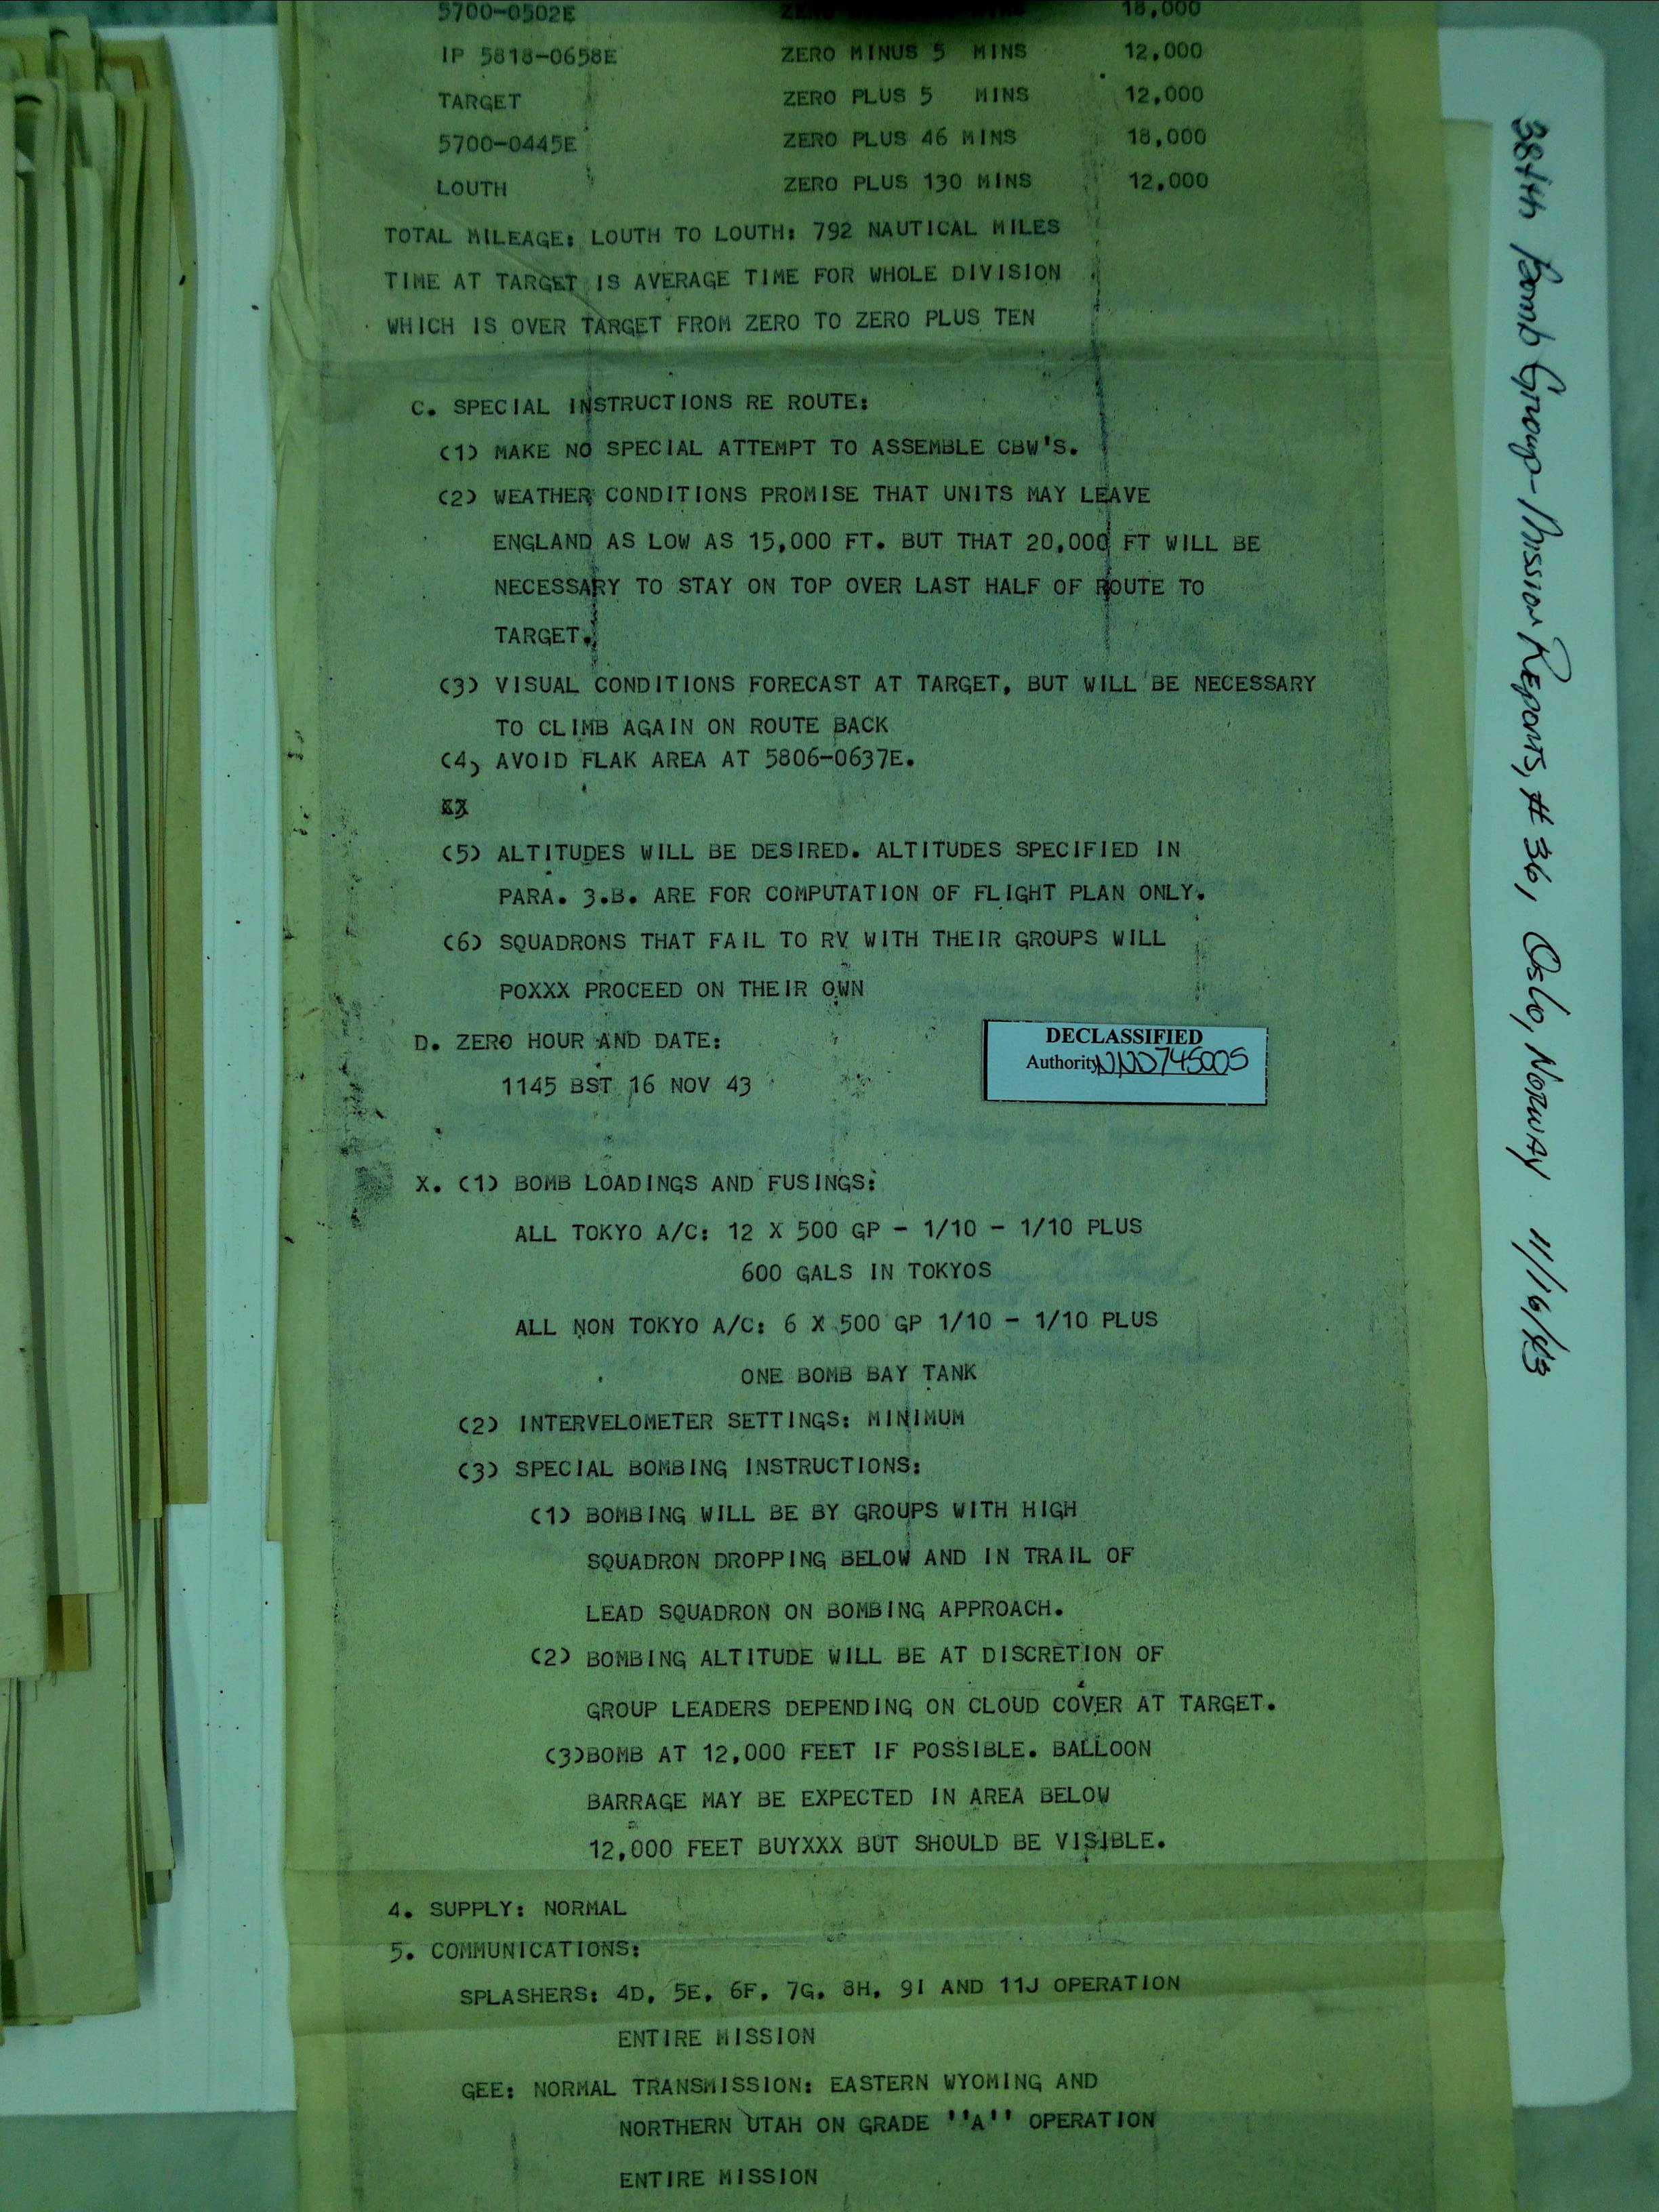 5700-0502E ZERO 18,000
IP 5818-0658E ZERO MINUS 5 MINS 12,000
TARGET ZERO PLUS 5 MINS 12,000
5700-0445E ZERO PLUS 46 MINS 18,000
LOUTH ZERO PLUS 130 MINS 12,000
TOTAL MILEAGE: LOUTH TO LOUTH: 792 NAUTICAL MILES
TIME AT TARGET IS AVERAGE TIME FOR WHOLE DIVISION
WHICH IS OVER TARGET FROM ZERO TO ZERO PLUS TEN
C. SPECIAL INSTRUCTIONS RE ROUTE:
(1) MAKE NO SPECIAL ATTEMPT TO ASSEMBLE CBW'S.
(2) WEATHER CONDITIONS PROMISE THAT UNITS MAY LEAVE
ENGLAND AS LOW AS 15,000 FT. BUT THAT 20,000 FT WILL BE
NECESSARY TO STAY ON TOP OVER LAST HALF OF ROUTE TO
TARGET.
(3) VISUAL CONDITIONS FORECAST AT TARGET, BUT WILL BE NECESSARY
TO CLIMB AGAIN ON ROUTE BACK
(4, AVOID FLAK AREA AT 5806-0637E.
(5) ALTITUDES WILL BE DESIRED. ALTITUDES SPECIFIED IN
PARA. 3.B. ARE FOR COMPUTATION OF FLIGHT PLAN ONLY.
(6) SQUADRONS THAT FAIL TO RV WITH THEIR GROUPS WILL
POXXX PROCEED ON THEIR OWN
D. ZERO HOUR AND DATE:
1145 BST 16 NOV 43
DECLASSIFIED
Authority NND745005
X. (1) BOMB LOADINGS AND FUSINGS:
ALL TOKYO A/C: 12 X 500 GP - 1/10 - 1/10 PLUS
600 GALS IN TOKYOS
ALL NON TOKYO A/C: 6 X 500 GP 1/10 - 1/10 PLUS
ONE BOMB BAY TANK
(2) INTERVELOMETER SETTINGS: MINIMUM
(3) SPECIAL BOMBING INSTRUCTIONS:
(1) BOMBING WILL BE BY GROUPS WITH HIGH
SQUADRON DROPPING BELOW AND IN TRAIL OF
LEAD SQUADRON ON BOMBING APPROACH.
(2) BOMBING ALTITUDE WILL BE AT DISCRETION OF
GROUP LEADERS DEPENDING ON CLOUD COVER AT TARGET.
(3)BOMB AT 12,000 FEET IF POSSIBLE. BALLOON
BARRAGE MAY BE EXPECTED IN AREA BELOW
12,000 FEET BUYXXX BUT SHOULD BE VISIBLE.
4. SUPPLY: NORMAL
5. COMMUNICATIONS:
SPLASHERS: 4D, 5E, 6F, 7G, 8H, 9I AND 11J OPERATION
ENTIRE MISSION
GEE: NORMAL TRANSMISSION: EASTERN WYOMING AND
NORTHERN UTAH ON GRADE ''A'' OPERATION
ENTIRE MISSION
384th Bomb Group - Mission Reports, #36, Oslo, Norway 11/16/43